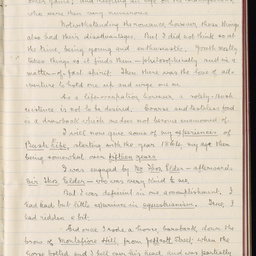 who were then very numerous.
Notwithstanding the romance, however, these things
also had their disadvantages. But I did not think so at
the time, being young and enthusiastic. Youth really
takes things as it finds them – philosophically and in a
matter-of-fact spirit. Then there was the love of ad-
venture to hold me up and urge me on.
As a life-occupation however, a
is not to be desired. Coarse and tasteless food
is a drawback which does not become enamoured of.
I will now give some of my experiences of
Bush Life, starting with the year 1864, my age then
being somewhat over fifteen years.
I was engaged by Mr Thos Elder – afterwards
Sir Thos Elder – who was very kind to me.
But I was deficient in one accomplishment. I
had had but little experience in equestrianism. True, I
had ridden a bit.
And once I rode a horse, bareback, down the
brow of Montefiore Hill, from Jeffcott Street when the
horse bolted and I fell over his head, and was partially